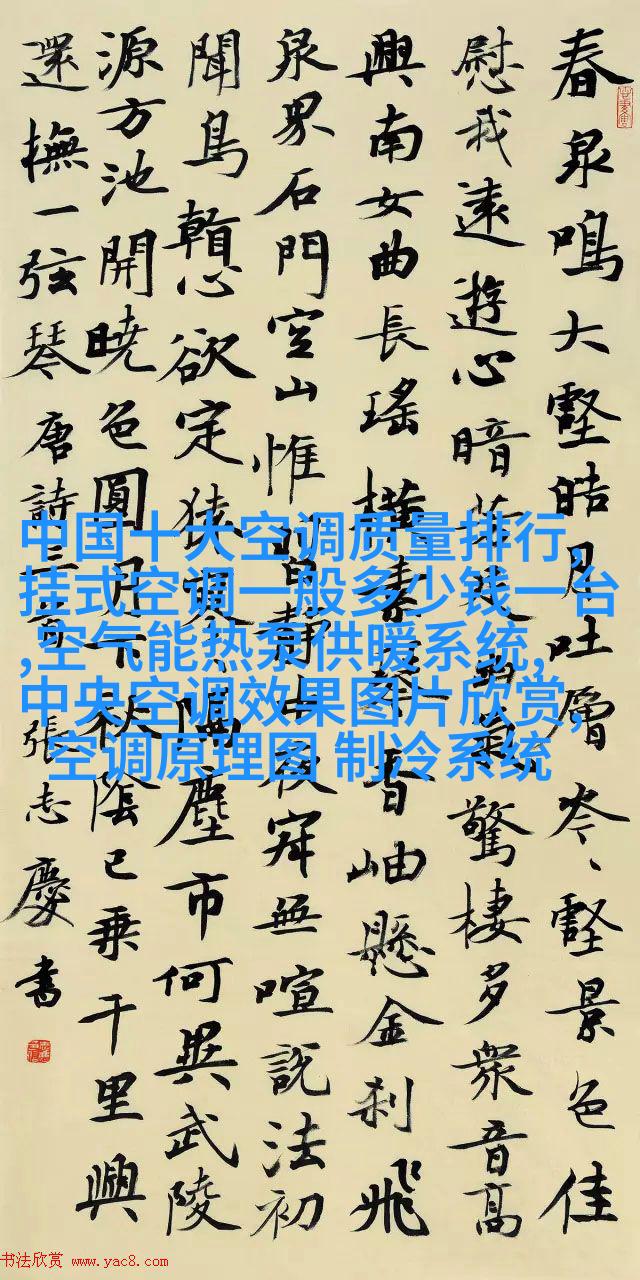 春泉鳴大壑皓月吐層岑岑壑景色佳
慰我遠遊心暗芳氣驚棲多衆音高
興南女曲長瑤橫素琴杳岫懸金刹飛
泉界石門空山惟習靜中夜寂無喧説法初
聞鳥心欲定猿隔塵市何異武陵
源方池開曉色圓月下秋陰已乗千里興
還撫一弦琴唐詩三首張志慶書
中国十大空调质量排行,
挂式空调一般多少钱一台
,空气能热泵供暖系统,
中央空调效果图片欣赏,
空调原理图 制冷系统
书法欣赏 www.yac8.com